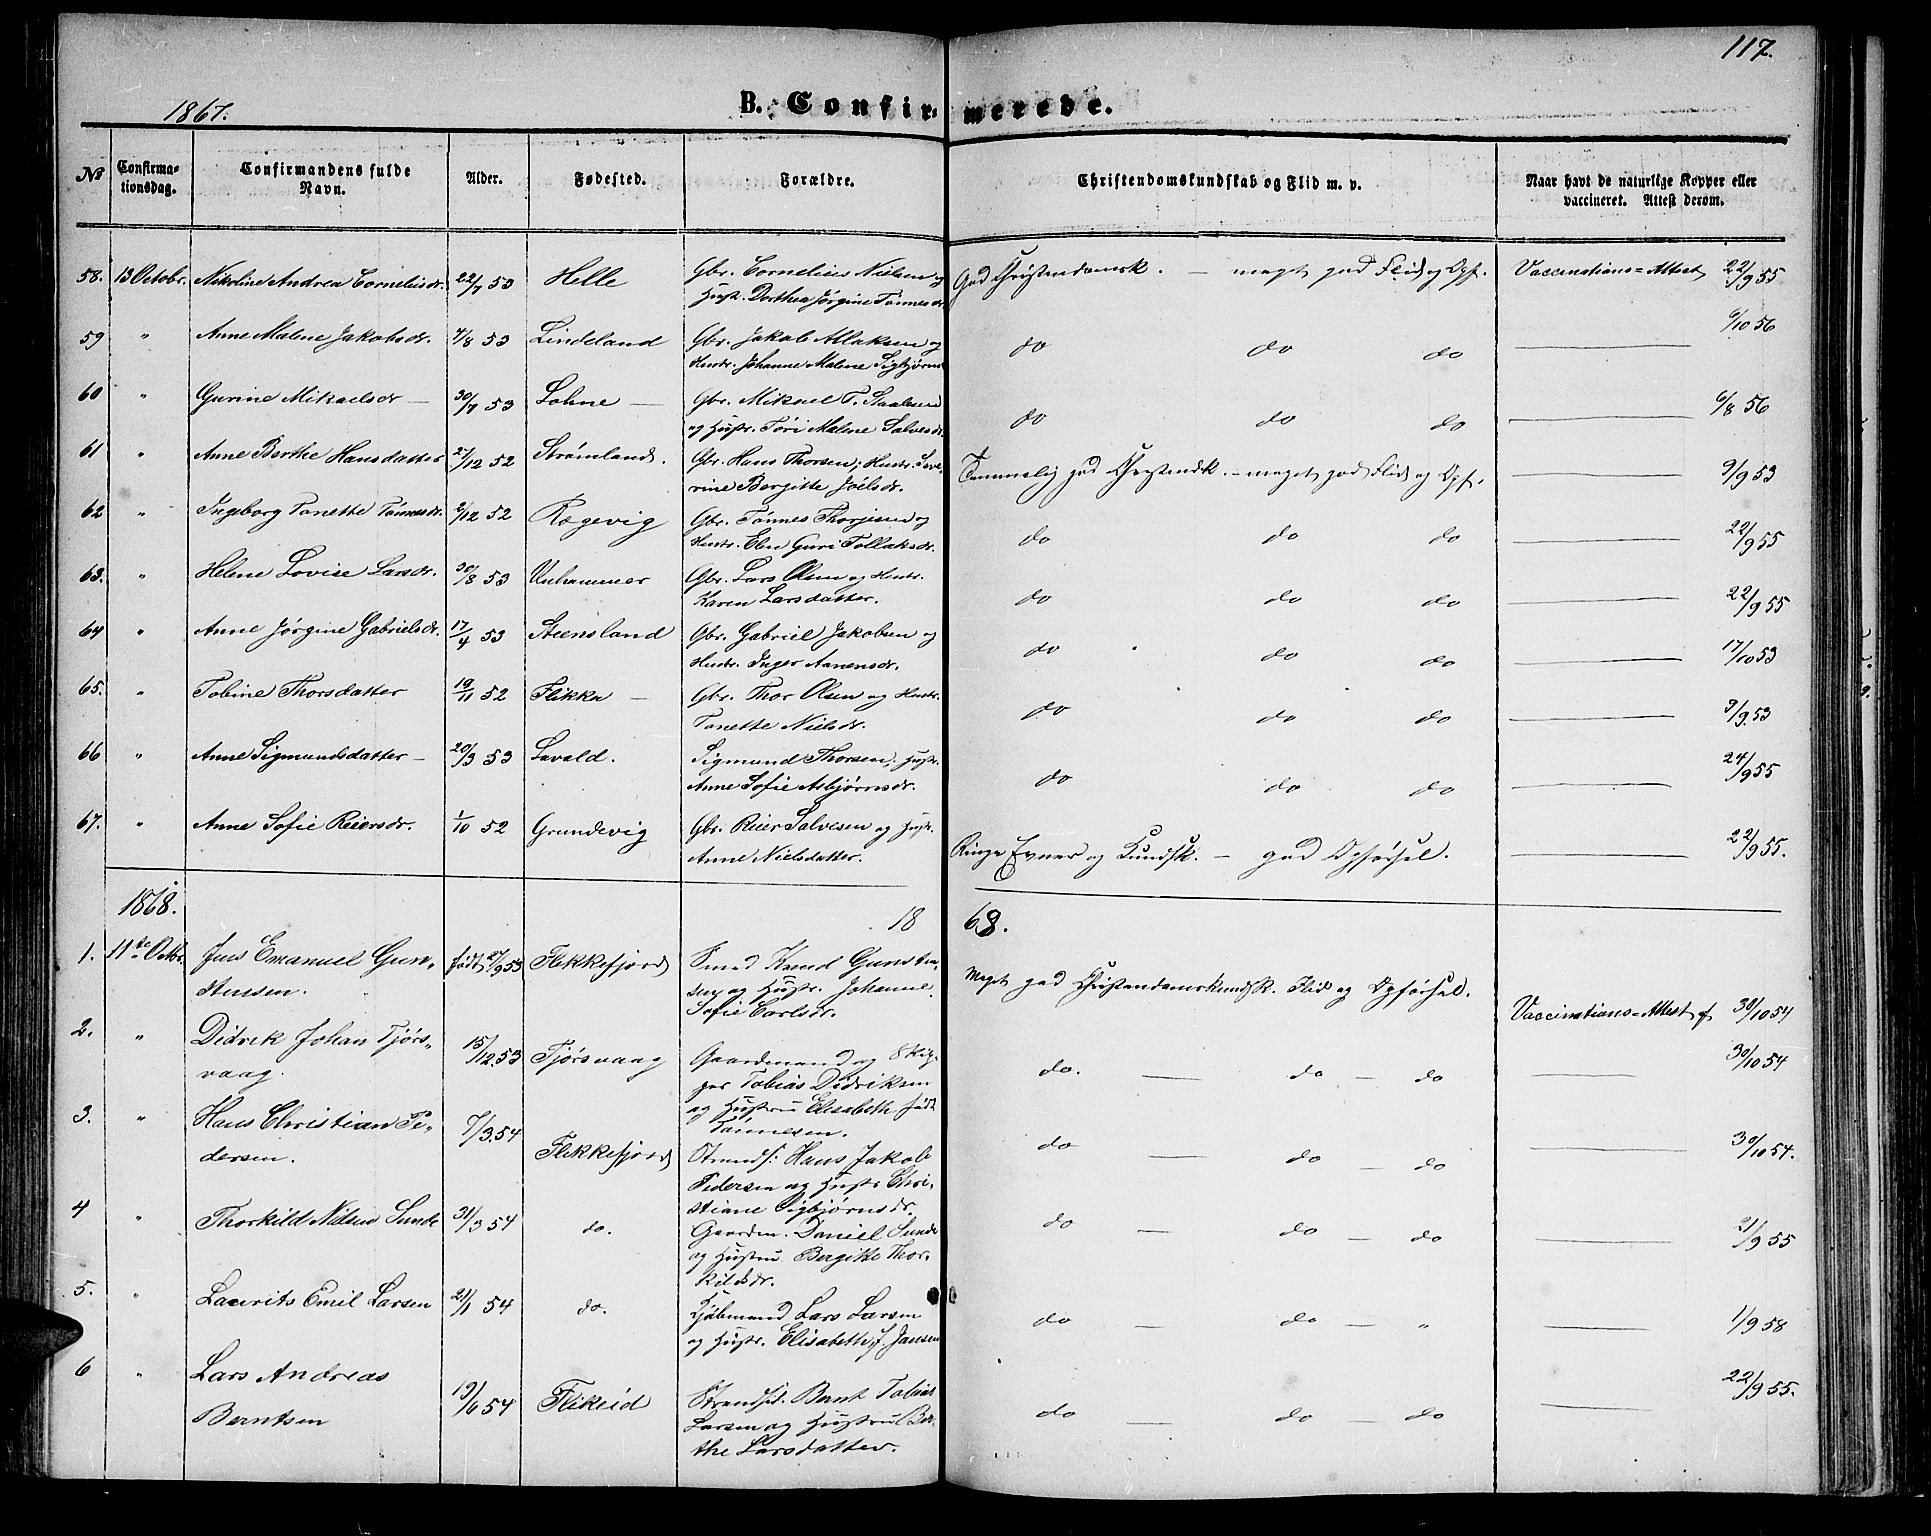 117.
1867.
B. Confirmerede.
No
Confirmationsdag.
Confirmandens fulde Navn.
Alder.
Fødested.
Forældre.
Christendomskundskab og Flid m. v.
Naar havt de naturlige Kopper eller vaccineret. Attest derom.
58. 13 Octobr. Nikoline Andrea Corneliusdr. 22/7 53 Helle Gbr. Cornelius Nielsen og God Christendomsk. — meget god Flid og Opf. Vaccinations=Attest 22/9 55
Hustr. Dorthea Jørgine Tønnesdr.
59 " Anne Malene Jakobsdr. 7/8 53 Lindeland Gbr. Jakob Atlaksen og do do do 6/10 56
Hustr. Johanne Malene Sigbjørnsd
60 " Gurine Mikaelsdr — 30/7 53 Lohne — Gbr. Mikael T. Staalesen do do do 6/8 56
og Hustr. Tøri Malene Salvesdr.
61 " Anne Berthe Hansdatter 27/12 52 Strømland. Gbr. Hans Thorsen; Hustr. Seve- Temmelig god Christendk. — meget god Flid og Opf. 9/9 53
rine Bergitte Joelsdr.
62 " Ingeborg Tonette Tønnesdr. 2/12 52 Rægevig Gbr. Tønnes Thorjesen og do do do 22/9 55
Hustr. Elen Guri Tollaksdr.
63. " Helene Lovise Larsdr. 30/8 53 Unhammer Gbr. Lars Olsen og Hustr. do do do 22/9 55
Karen Larsdatter.
64 " Anne Jørgine Gabrielsdr. 17/4 53 Steensland Gbr. Gabriel Jakobsen og do do do 17/10 53
Hustr. Inger Aanensdr.
65. " Tobine Thorsdatter 19/11 52 Flikka — Gbr. Thor Olsen og Hustr. do do do 3/9 53
Tonette Nielsdr.
66 " Anne Sigmundsdatter — 20/3 53 Lavold. Sigmund Thorsen, Hustr. do do do 24/9 55
Anne Sofie Asbjørnsdr.
67. " Anne Sofie Reiersdr. 1/10 52 Grundevig Gbr. Reier Salvesen og Hustr. Ringe Evner og Kundsk. — god Opførsel. 22/9 55.
Anne Nielsdatter.
1868. 18 68.
1. 11te Octbr. Jens Emanuel Gun- født 27/9 53 Flekkefjord Smed Knud Gunsten- Meget god Christendomskundsk. Flid og Opførsel. Vaccinations=Attest af 30/10 54
stensen. sen og Hustr. Johanne
Sofie Carlsdr.
2. " Didrik Johan Tjørs- 15/12 53 Tjørsvaag Gaardmand og Skip- do. — do — do 30/10 54
vaag. per Tobias Didriksen
og Hustru Elisabeth født
Tønnesen.
3. " Hans Christian Pe- 7/3 54 Flekkefjord Strands: Hans Jakob do — do — do 30/10 54.
dersen. Pedersen og Hustr Chri-
stiane Sigbjørnsdr.
4 " Thorkild Nilsen Sunde 31/3 54 do. Gaardm. Daniel Sunde do — do — do 21/9 55
og Hustru Bergitte Thor-
kildsdr.
5. " Laurits Emil Larsen 21/1 54 do. Kjøbmand Lars Larsen do — do — " 1/9 58
og Hustr. Elisabeth f. Jansen
6 " Lars Andreas 19/6 54 Flikeid Strandsid. Bernt Tobias do — do — do 22/9 55.
Berntsen Larsen og Hustru Ber-
the Larsdatter.